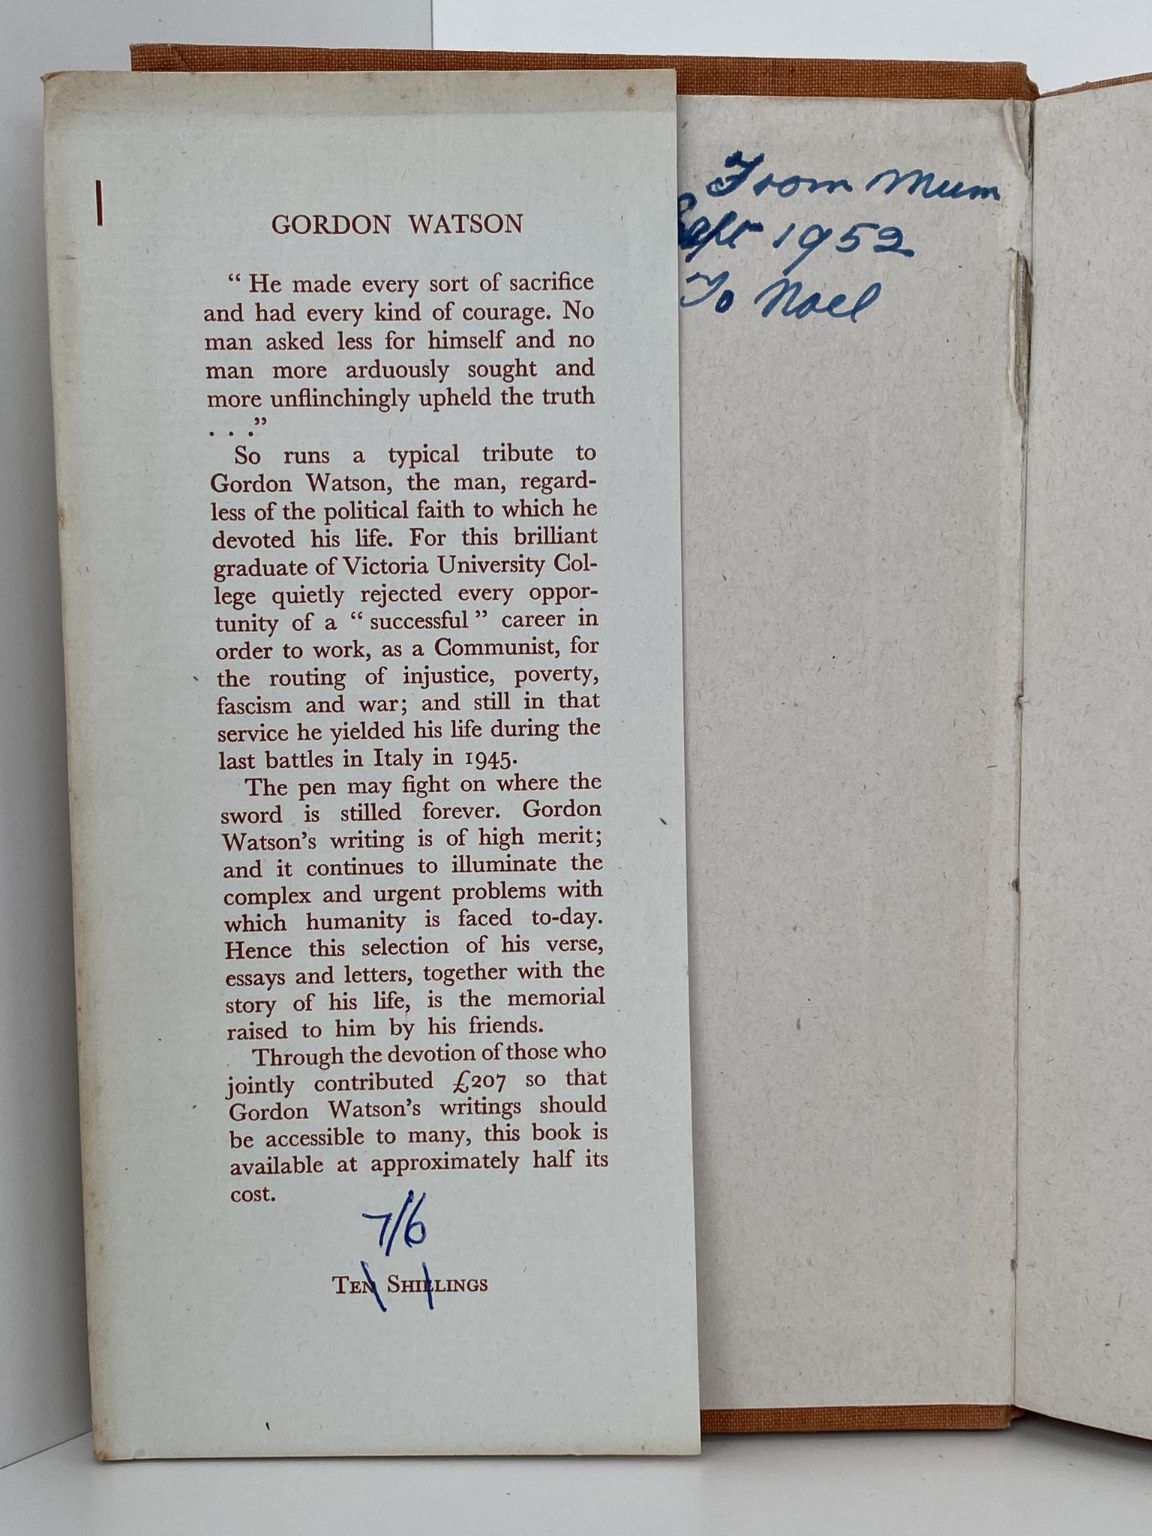 GORDON WATSON
“ He made every sort of sacrifice
and had every kind of courage. No
man asked less for himself and no
man more arduously sought and
more unflinchingly upheld the truth
. . .”
So runs a typical tribute to
Gordon Watson, the man, regard-
less of the political faith to which he
devoted his life. For this brilliant
graduate of Victoria University Col-
lege quietly rejected every oppor-
tunity of a “ successful ” career in
order to work, as a Communist, for
the routing of injustice, poverty,
fascism and war; and still in that
service he yielded his life during the
last battles in Italy in 1945.
The pen may fight on where the
sword is stilled forever. Gordon
Watson’s writing is of high merit;
and it continues to illuminate the
complex and urgent problems with
which humanity is faced to-day.
Hence this selection of his verse,
essays and letters, together with the
story of his life, is the memorial
raised to him by his friends.
Through the devotion of those who
jointly contributed £207 so that
Gordon Watson’s writings should
be accessible to many, this book is
available at approximately half its
cost.
7/6
TEN SHILLINGS
From Mum
Sept 1952
To Noel